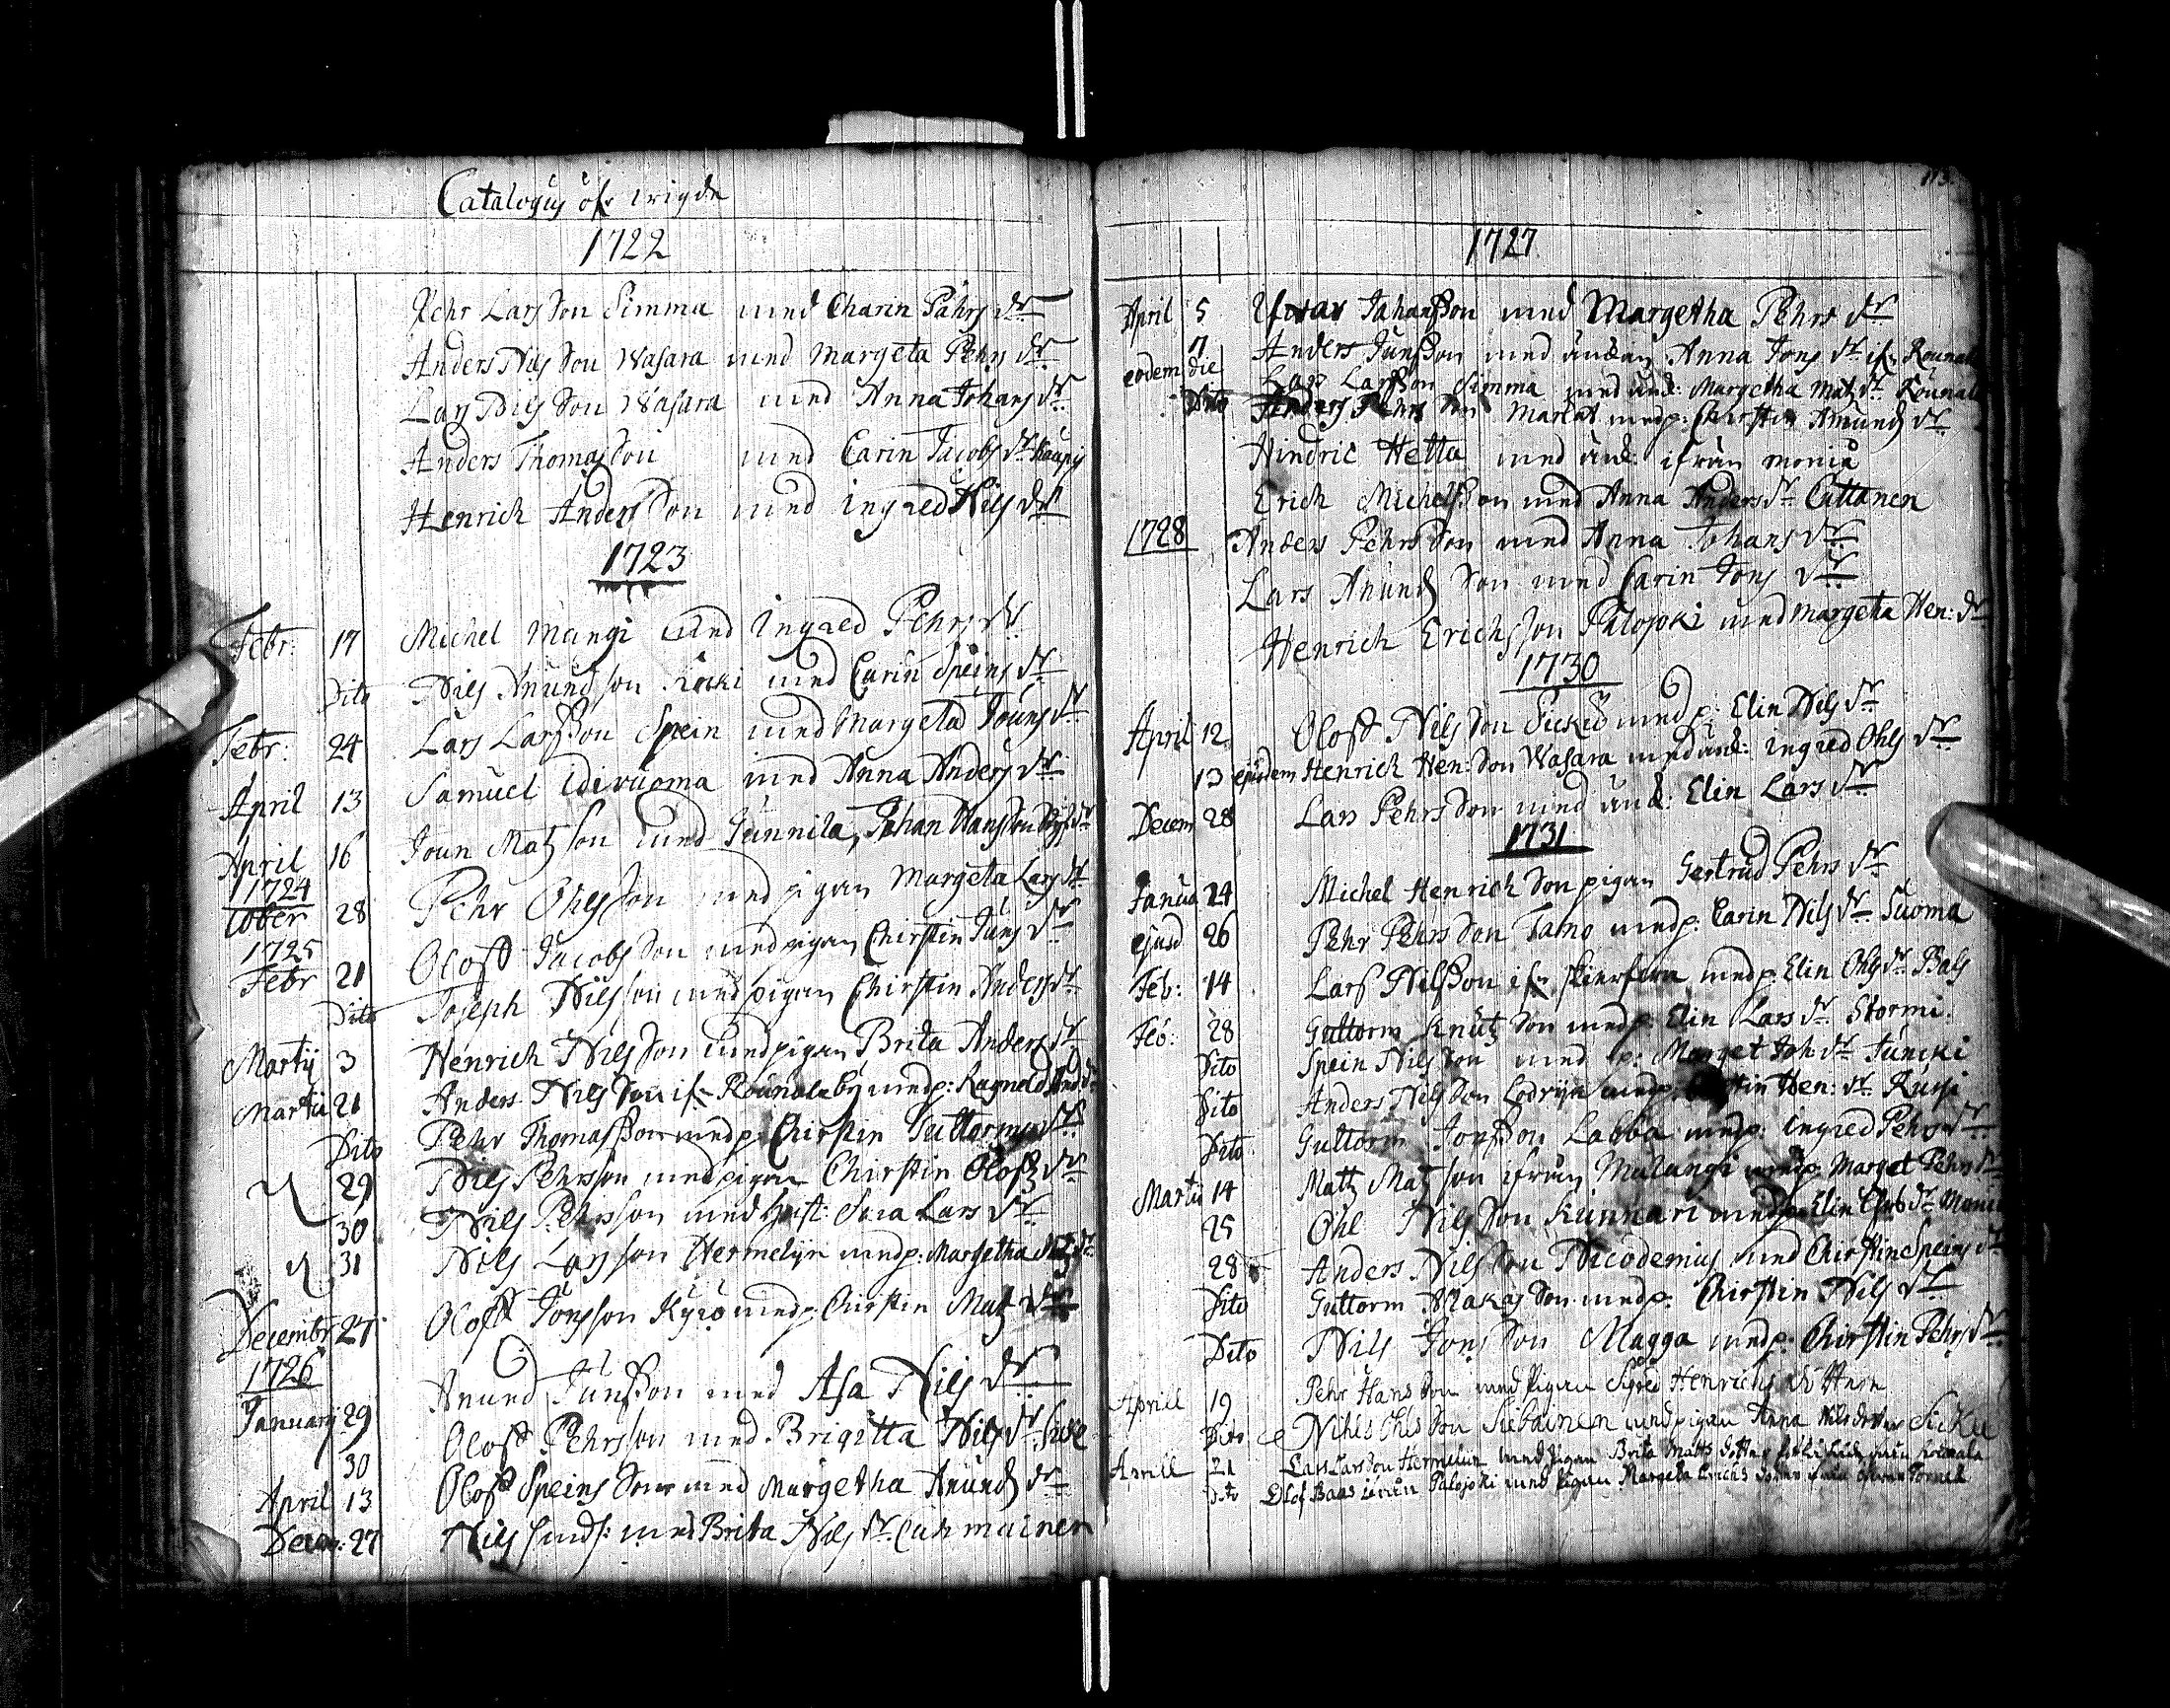 Catalogus öfr wigde
1722
Pehr Larsson Simma med Charin Pährs dr
Anders Nils Son Wasara med Margeta Pehrs dr
Lars Nils Son Wasara med Anna Johans dr
Anders Thomas Son med Carin Jacobs dr
Henrich Anders Son med Ingred Nils dr
1723
Febr: 17 Michel Mangi med Ingred Pehrs dr
Dito Nils Anund son med Carin Speins dr
Febr: 24 Lars Larsson Spein med Margeta Jouns dr
April 13 Samuel Idivuoma med Anna Anders dr
April 16 Joun Matsson med Gunnila, Johan Hansson
1724
28 Pehr Ohlsson med pigan Margeta Lars dr
1725
Febr 21 Oloff Jacobs Son med pigan Chirstin Juns dr
Dito Joseph Nilsson med pigan Chirstin Anders dr
Martij 3 Henrich Nils Son med pigan Brita Anders dr
Martii 21 Anders Nils Son ifr Rounalaby med p: Ragneld
Dito Pehr Thomasson med p: Chirstin Guttorms dr
29 Nils Pehrsson med pigan Chirstin Olofs dr
30 Nils Pehrsson med hust: Sara Lars dr
31 Nils Larsson Hermelijn med p: Margetha
Decembr 27 Oloff Jonsson Kyrö med p: Chirstin Mats dr
1726
January 29 Anund Junsson med Asa Nils dr
30 Oloff Pehrsson med Brigitta Nils dr
April 13 Oloff Speins Son med Margetha Anunds dr
Decem: 27 Nils med Brita Nils dr
113.
1727
April 5 Johansson med Margetha Pehrs dr
7 Anders Junsson med änkan Anna Jons dr ifr Rounala
eodem die Lars Larsson Simma med änk: Margetha Mats dr Rounala
Dito Anders Pehrs Son Markat med p: Chirstin Amunds dr
Hindric Hetta med änk: ifrån Moniå
Erich Michelsson med Anna Anders dr Cuttanen
1728 Anders Pehrs Son med Anna Johans dr
Lars Anunds Son med Carin Jons dr
Henrich Erichsson Palojoki med Margeta Hen: dr
1730
April 12 Oloff Nils Son Sicku med p: Elin Nils dr
13 ejusdem Henrich Hen: Son Wasara med änk: Ingred Ohls dr
Decem 28 Lars Pehrs Son med änk: Elin Lars dr
1731
Janua 24 Michel Henrich Son pigan Gertrud Pehrs dr
ejusd 26 Pehr Pehrs Son Tamo med p: Carin Nils dr Suoma
Feb: 14 Lars Nilsson ifr med p: Elin Ohls dr Bals
Feb: 28 Guttorm Knuts Son med p: Elin Lars dr Stormi
Dito Spein Nils Son med p: Marget Joh dr
Dito Anders Nils Son med p: Hen: dr
Dito Guttorm Jonsson Labba med p: Ingred Pehrs dr
Martii 14 Matts Matsson ifrån med p: Marget Pehrs dr
25 Ohl Nils Son Kunnari med p: Elin
28 Anders Nils Son Nicodemus med Chirstin Speins dr
Dito Guttorm Son med p: Chirstin Nils dr
Dito Nils Jons Son Magga med p: Chirstin Pehrs dr
Aprill 19 Pehr Hans Son med Pigan Henrichs
Dito Ohls Son med pigan Anna Nils dotter Sicku
Aprill 21 Lars Lars Son Hermelin med Pigan Brita Matts dotter
Dito Olof Baas Palojoki med Pigan Margeta Erichs dotter